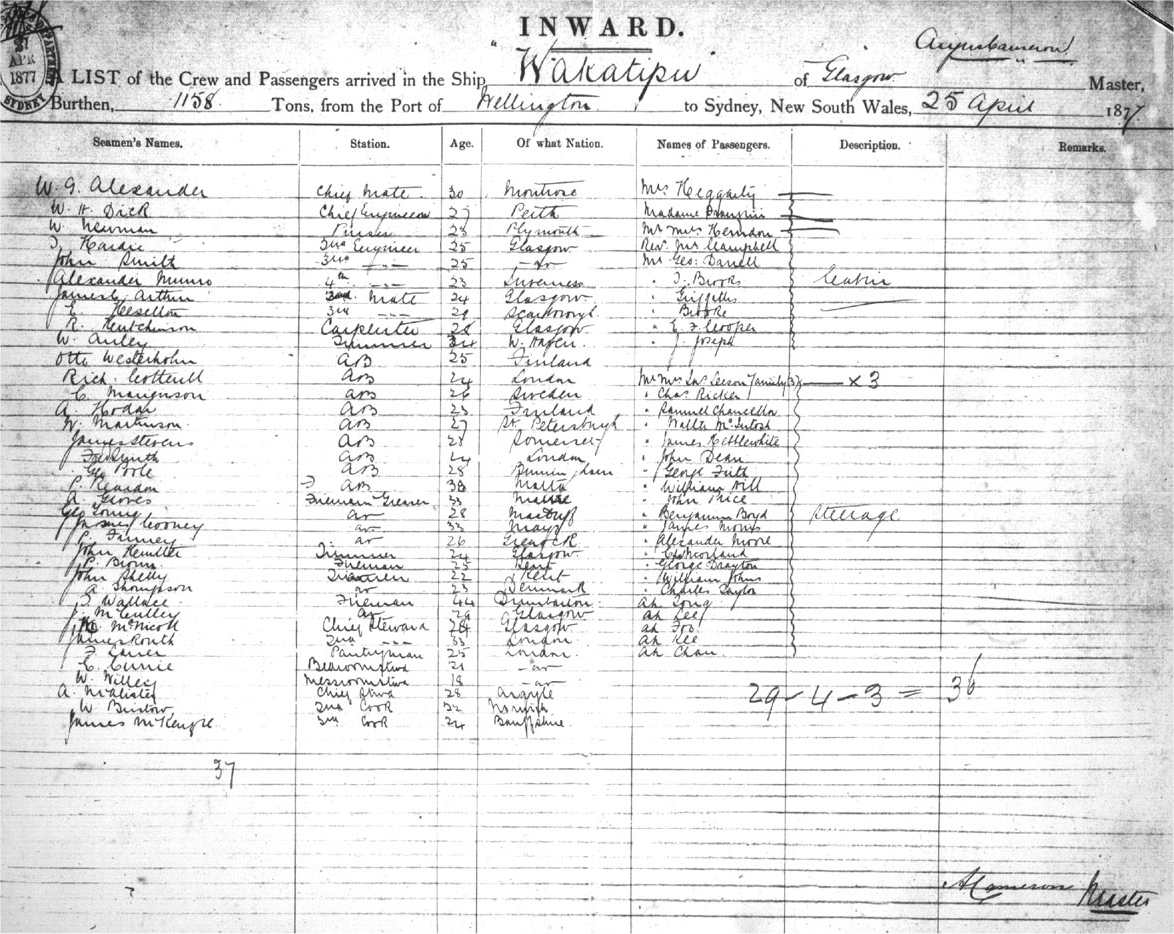 INWARD.
27 APR 1877 SYDNEY
A LIST of the Crew and Passengers arrived in the Ship, "Wakatipu of Glasgow Angus Cameron Master,
Burthen, 1158 Tons, from the Port of Wellington to Sydney, New South Wales, 25 April 1877
Seamen's Names. Station. Age. Of what Nation. Names of Passengers. Description. Remarks.
W. G. Alexander Chief Mate 30 Montrose Mrs Heggarty
W. H. Dick Chief Engineer 27 Perth Madame
W Newman Purser 28 Plymouth Mr Mrs Herndon
Hardie 2nd Engineer 25 Glasgow Revd Mr Campbell
John Smith 3rd - - - 25 - do - Mr Geo: Darrell
Alexander Munro 4th - - - 23 Inverness " J. Brooks Cabin
James Arthur 2nd Mate 24 Glasgow " Griffiths
E. Heselton 3rd - - - 29 Scarborough " Brooke
R. Hutchinson Carpenter 28 Glasgow " E F Cooper
W. 34 W. Haven " J. Joseph
Otto Westerholm AB 25 Finland
Rich. Cotterill AB 24 London Mr Mrs Leeson Family (3) x 3
C. Maugnson AB 26 Sweden " Chas Ricker
A. Hodar AB 23 Finland " Samuel Chancellor
W. Martinson AB 27 St. Petersburgh " Walter McIntosh
James Stevens AB 28 Somerset " James Kebblewhite
Fred Smith AB 24 London " John Dean
Geo Pole AB 28 " George Firth
P. Reardon AB 38 Malta " William Hill
A. Groves Fireman Greaser 33 " John Price
Geo Young do 28 " Benjamin Boyd Steerage
James Cooney do 33 Mayo " James Morris
P. Fanney do 26 Greenock " Alexander Moore
John Trimmer 24 Glasgow
P. Burns Fireman 25 Kent " George Drayton
John Shelly Trimmer 22 Kent " William Johns
A Thompson do 23 Denmark " Charles Taylor
S. Wallace Fireman 44 Dumbarton Ah Song
J. McCulley do 29 Glasgow Ah Lee
McNicoll Chief Steward 28 Glasgow Ah Foo
James Routh 2nd - - - 33 London Ah Kee
F. Pantryman 25 London Ah Chau
C. Currie 21 - do
W. Willey 18 - do
A. McAlister Chief Cook 28 Argyle 29 - 4 - 3 = 36
W Burtow 2nd Cook 32 Norwich
James McKenzie 3rd Cook 24 Banffshire
37
ACameron Master